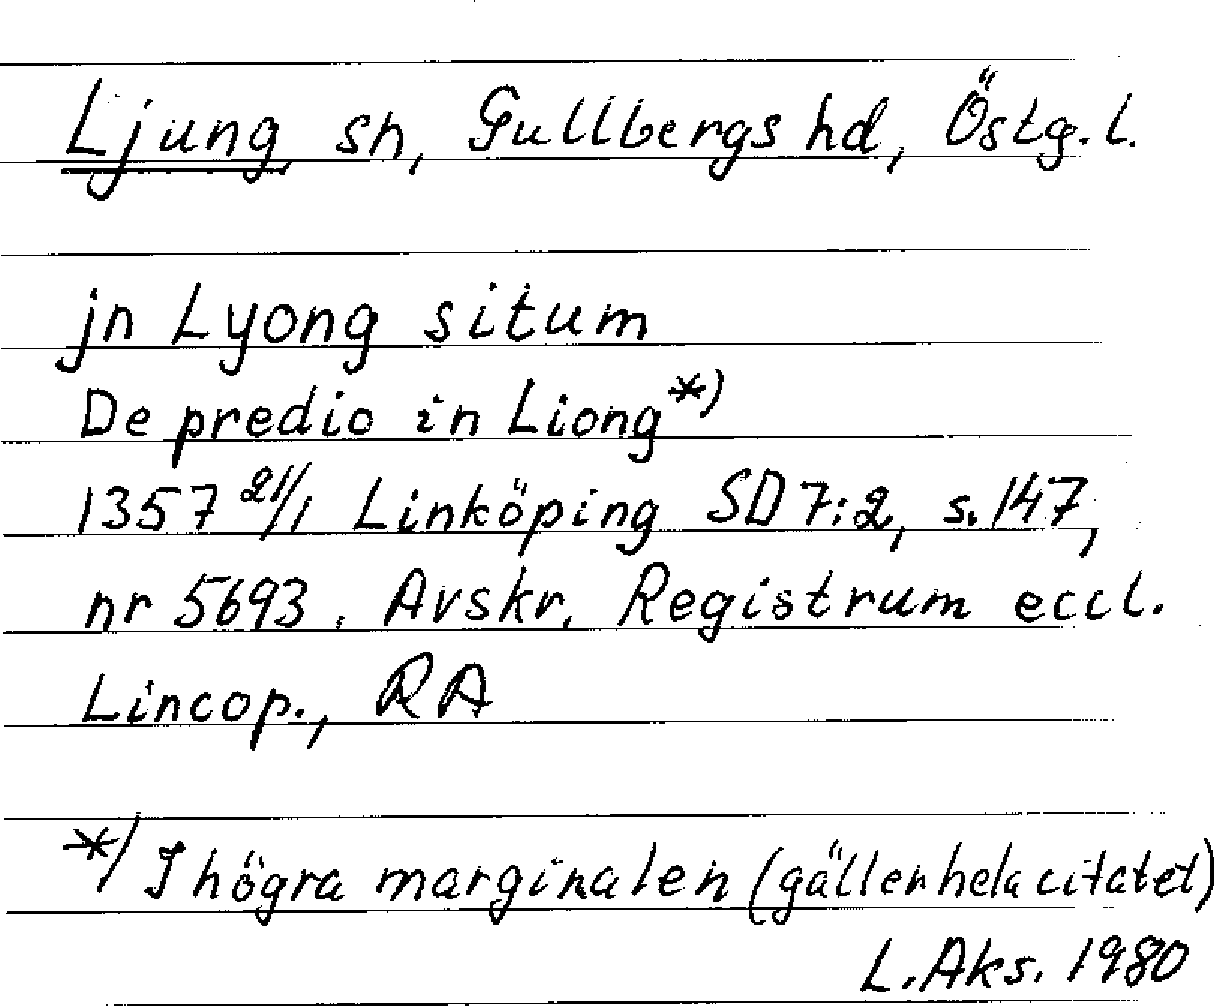 Ljung sn, Gullbergs hd, Östg. l.
jn Lyong situm
De predio in Liong *)
1357 21/1 Linköping SD 7:2, s. 147,
nr 5693. Avskr. Registrum eccl.
Lincop., RA
*/ I högra marginalen (gäller hela citatet)
L. Aks. 1980